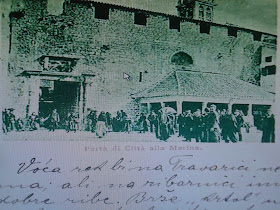 Porta di Città alla Marina.
Voća rek bi na Travarici ne
ma; ali na ribarnici im
dobre ribe.